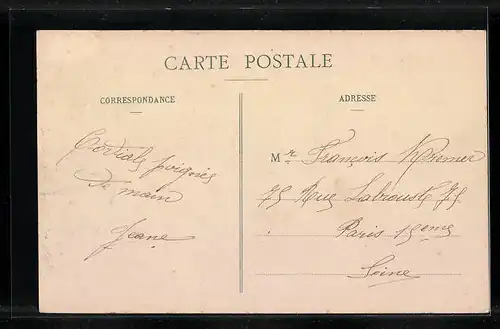 CARTE POSTALE
CORRESPONDANCE
Cordiale poignée
de main
Jeane
ADRESSE
Mr François Kremer
75 Rue Labrouste 75
Paris 15eme
Seine